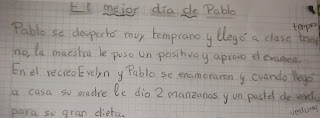 El mejor día de Pablo
Pablo se despertó muy temprano y llegó a clase tempra
no, la maestra le puso un positivo y aprobó el examen.
En el recreo Evelyn y Pablo se enamoraron y cuando llegó
a casa su madre le dio 2 manzanas y un pastel de verdu
para su gran dieta. verduras